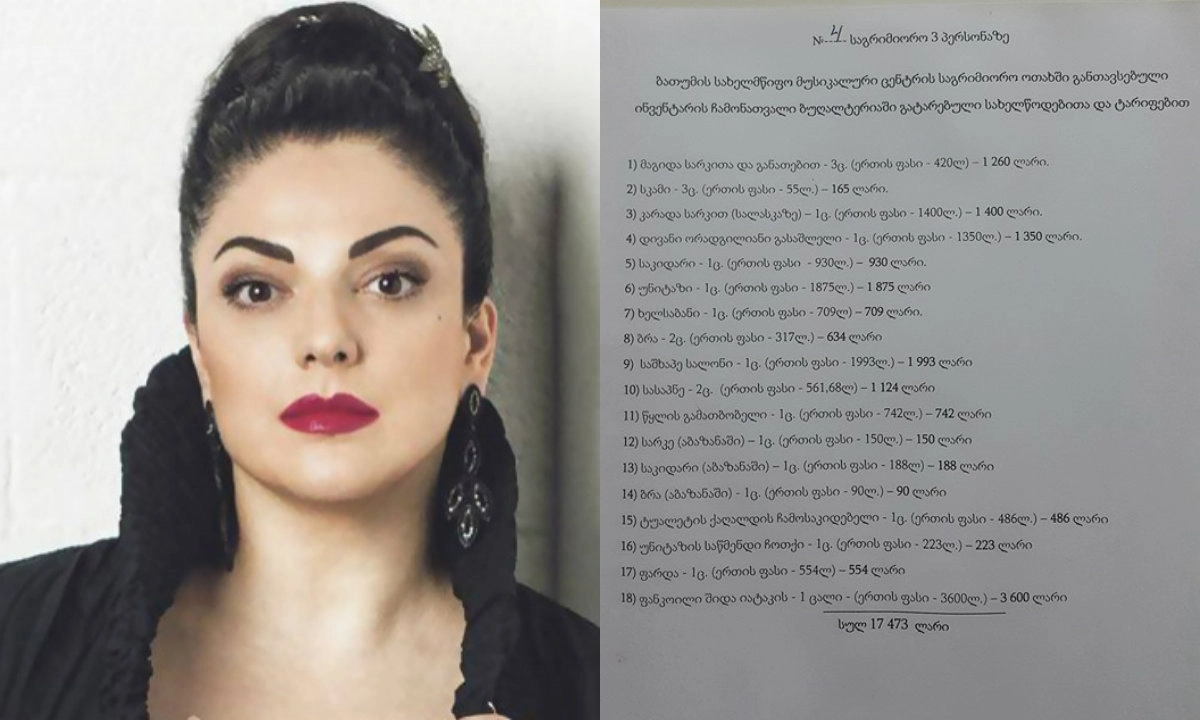 № 4 საგრიმიორო 3 პერსონაზე
ბათუმის სახელმწიფო მუსიკალური ცენტრის საგრიმიორო ოთახში განთავსებული
ინვენტარის ჩამონათვალი ბუღალტერიაში გატარებული სახელწოდებითა და ტარიფებით
1) მაგიდა სარკითა და განათებით - 3ც. (ერთის ფასი - 420ლ) – 1 260 ლარი.
2) სკამი - 3ც. (ერთის ფასი - 55ლ.) – 165 ლარი.
3) კარადა სარკით (სალასკაზე) – 1ც. (ერთის ფასი - 1400ლ.) – 1 400 ლარი.
4) დივანი ორადგილიანი გასაშლელი - 1ც. (ერთის ფასი - 1350ლ.) – 1 350 ლარი.
5) საკიდარი - 1ც. (ერთის ფასი - 930ლ.) – 930 ლარი.
6) უნიტაზი - 1ც. (ერთის ფასი - 1875ლ.) – 1 875 ლარი
7) ხელსაბანი - 1ც. (ერთის ფასი - 709ლ) – 709 ლარი.
8) ბრა - 2ც. (ერთის ფასი - 317ლ.) – 634 ლარი
9) საშხაპე სალონი - 1ც. (ერთის ფასი - 1993ლ.) – 1 993 ლარი
10) სასაპნე - 2ც. (ერთის ფასი - 561,68ლ) – 1 124 ლარი
11) წყლის გამათბობელი - 1ც. (ერთის ფასი - 742ლ.) – 742 ლარი
12) სარკე (აბაზანაში) – 1ც. (ერთის ფასი - 150ლ.) – 150 ლარი
13) საკიდარი (აბაზანაში) – 1ც. (ერთის ფასი - 188ლ) – 188 ლარი
14) ბრა (აბაზანაში) - 1ც. (ერთის ფასი - 90ლ.) – 90 ლარი
15) ტუალეტის ქაღალდის ჩამოსაკიდებელი - 1ც. (ერთის ფასი - 486ლ.) – 486 ლარი
16) უნიტაზის საწმენდი ჩოთქი - 1ც. (ერთის ფასი - 223ლ.) – 223 ლარი
17) ფარდა - 1ც. (ერთის ფასი - 554ლ) – 554 ლარი
18) ფანკოილი შიდა იატაკის - 1 ცალი - (ერთის ფასი - 3600ლ.) – 3 600 ლარი
სულ 17 473 ლარი